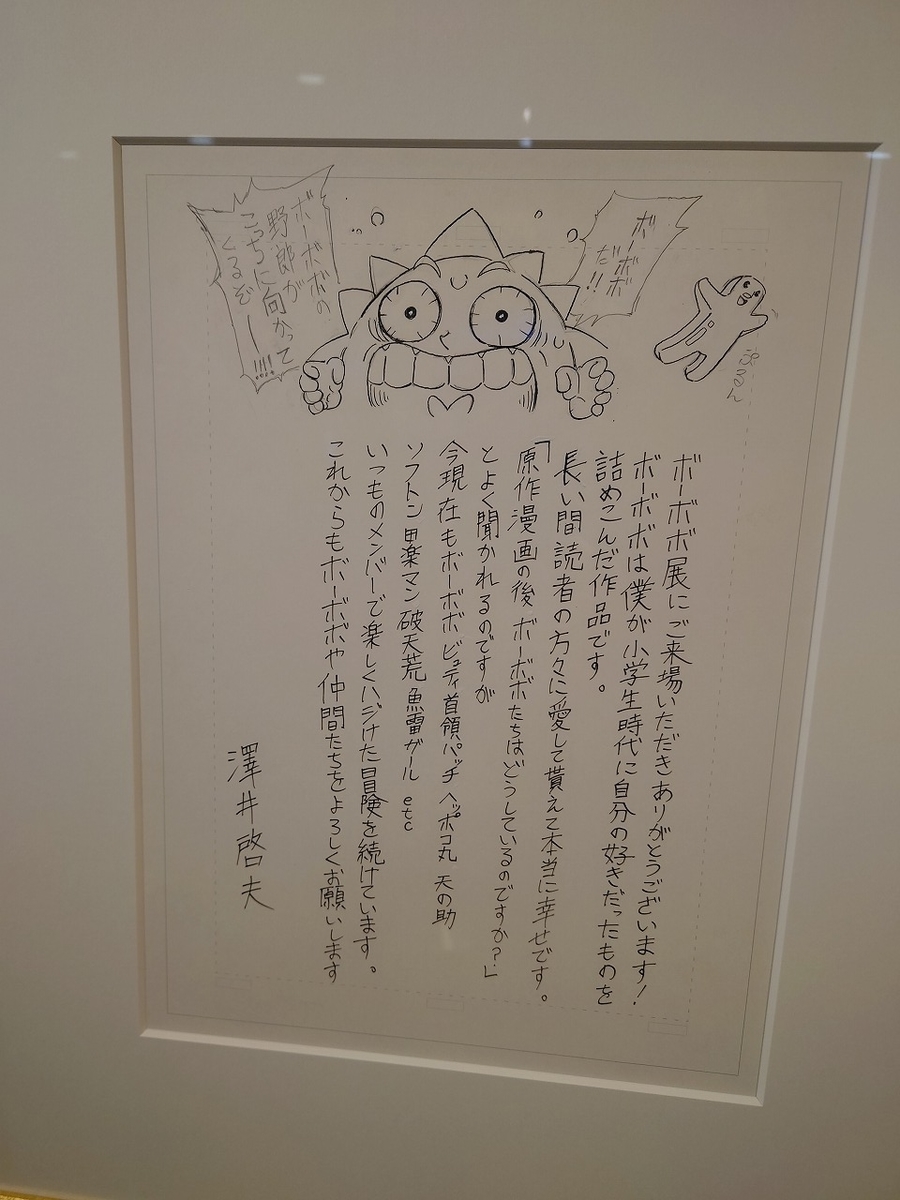 ボーボボ
だ!!
ぷるん
ボーボボの
野郎が
こっちに向かって
くるぞー!!!!
ボーボボ展にご来場いただきありがとうございます!
ボーボボは僕が小学生時代に自分の好きだったものを
詰めこんだ作品です。
長い間読者の方々に愛して貰えて本当に幸せです。
「原作漫画の後 ボーボボたちはどうしているのですか?」
とよく聞かれるのですが
今現在もボーボボ ビュティ 首領パッチ ヘッポコ丸 天の助
ソフトン 田楽マン 破天荒 魚雷ガール etc
いつものメンバーで楽しくハジけた冒険を続けています。
これからもボーボボや仲間たちをよろしくお願いします
澤井啓夫